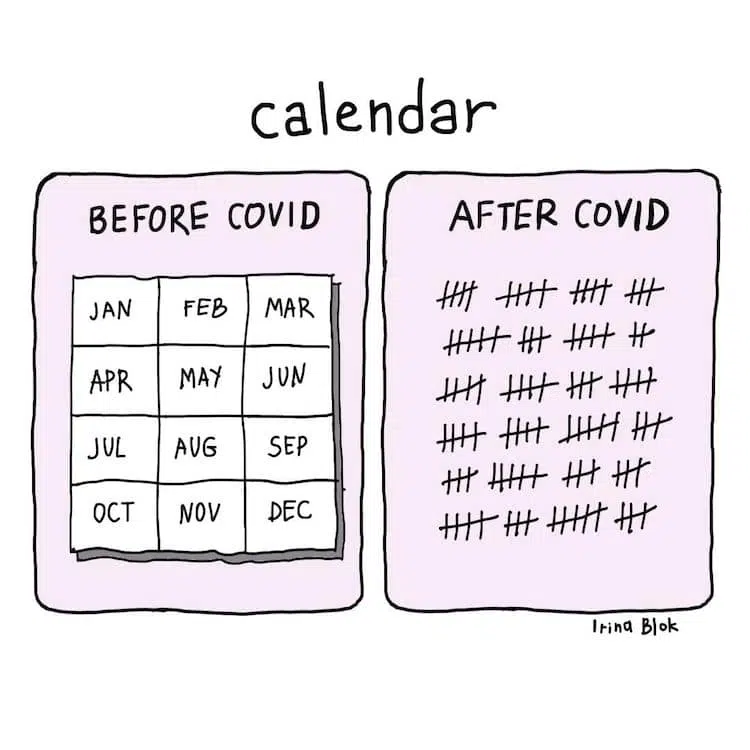 calendar
BEFORE COVID
JAN FEB MAR
APR MAY JUN
JUL AUG SEP
OCT NOV DEC
AFTER COVID
Irina Blok